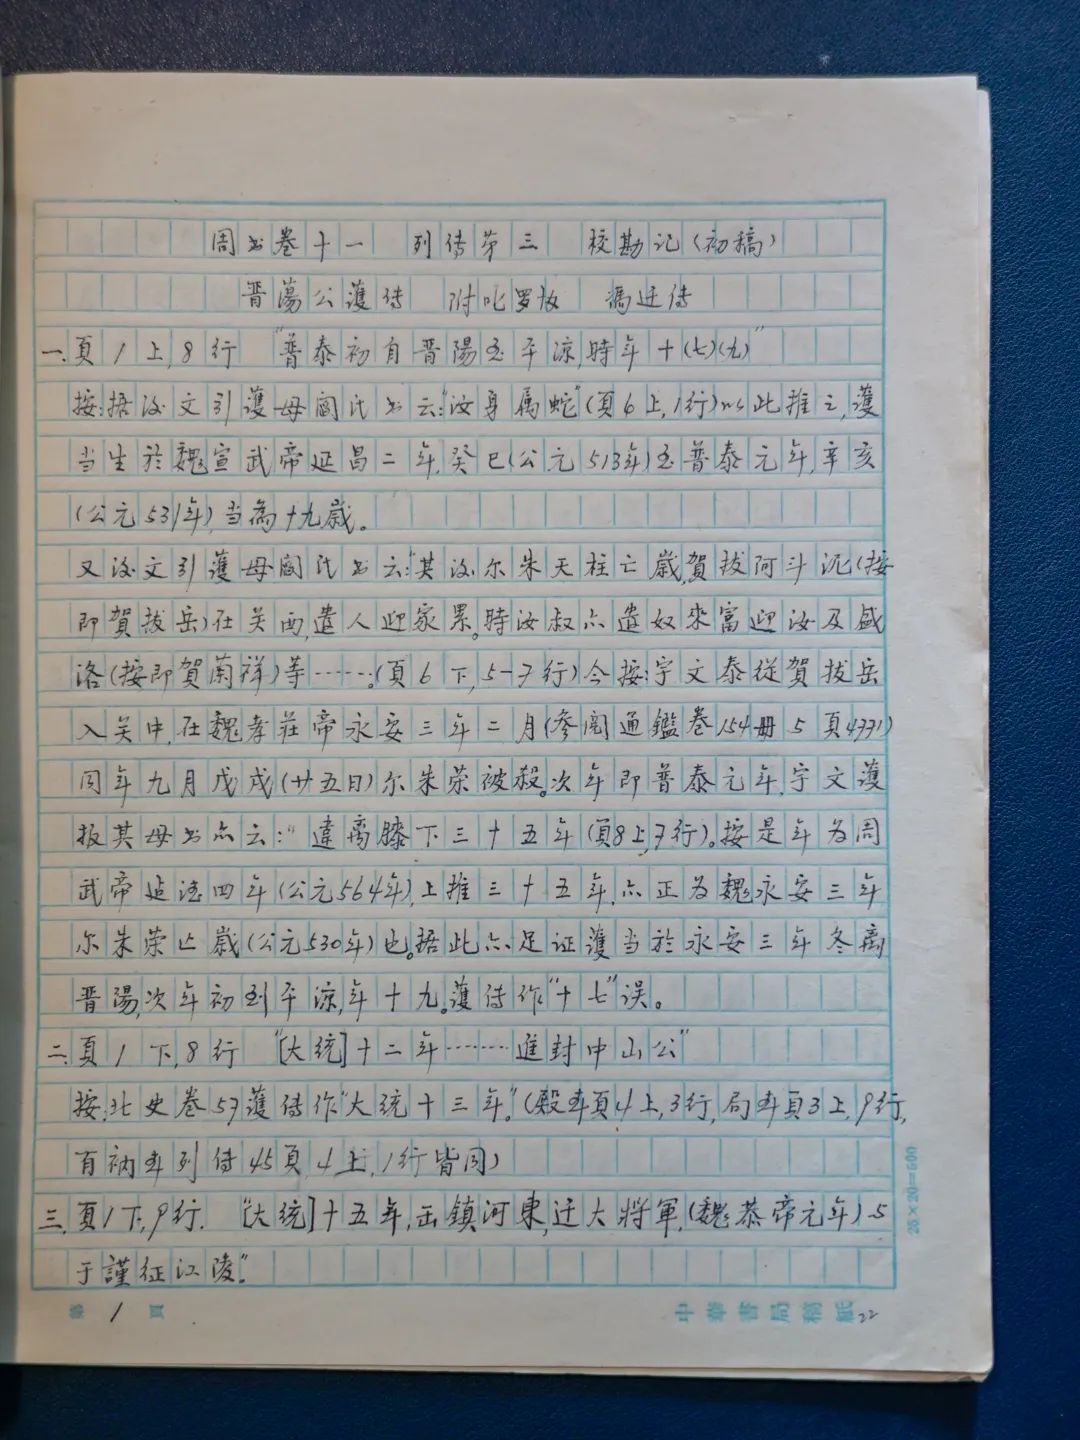 周书卷十一 列传第三 校勘记(初稿)
晋蕩公護传 附叱罗协 馮迁传
一、頁1上,8行 "普泰初自晋陽至平涼,時年十(七)(九)"
按:据後文引護母閻氏书云:"汝身属蛇"(頁6上,1行)以此推之,護
当生於魏宣武帝延昌二年,癸巳(公元513年)至普泰元年,辛亥
(公元531年),当為十九歳。
又後文引護母閻氏书云:"其後尔朱天柱亡歳,賀拔阿斗泥(按
即賀拔岳)在关西,遣人迎家累。時汝叔亦遣奴來富迎汝及盛
洛(按即賀蘭祥)等……。(頁6下,5-7行)今按:宇文泰從賀拔岳
入关中,在魏孝莊帝永安三年二月(参閲通鑑卷154册5頁4771)
同年九月戊戌(廿五日)尔朱荣被殺。次年即普泰元年,宇文護
报其母书亦云:"違离膝下三十五年(頁8上,7行)。按是年为周
武帝保定四年(公元564年),上推三十五年,亦正为魏永安三年
尔朱荣亡歳(公元530年)也。据此亦足证護当於永安三年冬离
晋陽,次年初到平涼,年十九。護传作"十七"误。
二、頁1下,8行 "[大统]十二年……進封中山公"
按:北史卷57護传作"大统十三年。"(殿本頁4上,3行,局本頁3上,9行,
百衲本列传45頁4上,1行皆同)
三、頁1下,9行. "[大统]十五年,出鎮河東,迁大将軍,(魏恭帝元年)与
于謹征江陵。"
第1頁 中華書局稿紙 22
25×20=500